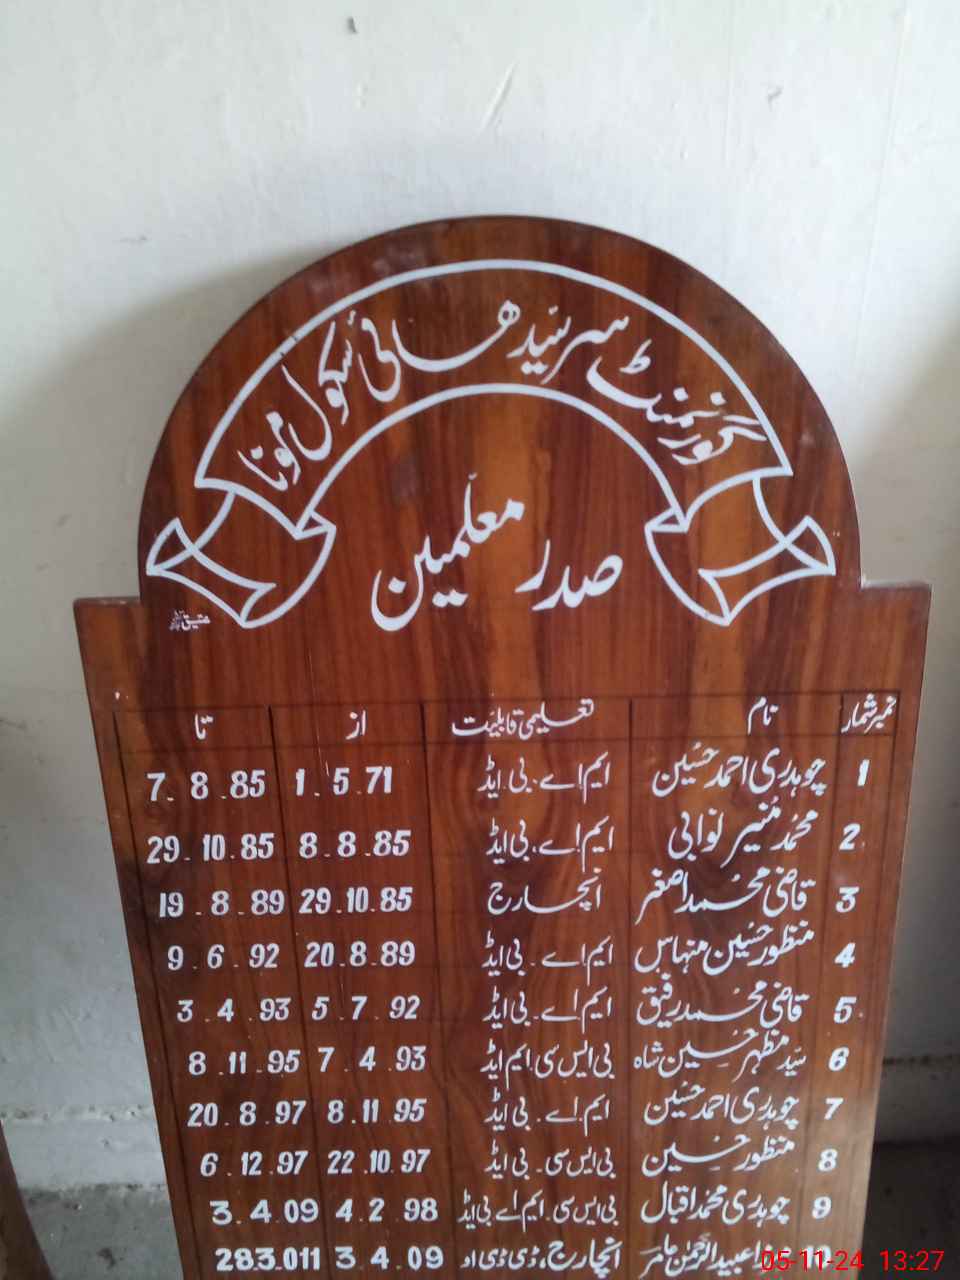 گورنمنٹ سرسیّد ھائی سکول مونا
صدر معلّمین
نمبرشمار نام تعلیمی قابلیّت از تا
1 چوہدری احمد حسین ایم اے. بی ایڈ 1.5.71 7.8.85
2. محمّد منیر نوابی ایم اے. بی ایڈ 8.8.85 29.10.85
3 قاضی محمّد اصغر انچارج 29.10.85 19.8.89
4 منظور حسین منہاس ایم اے. بی ایڈ 20.8.89 9.6.92
5. قاضی محمّد رفیق ایم اے. بی ایڈ 5.7.92 3.4.93
6 سیّد مظہر حسین شاہ بی ایس سی. ایم ایڈ 7.4.93 8.11.95
7 چوہدری احمد حسین ایم اے. بی ایڈ 8.11.95 20.8.97
8 منظور حسین بی ایس سی. بی ایڈ 22.10.97 6.12.97
9 چوہدری محمّد اقبال بی ایس سی. ایم اے بی ایڈ 4.2.98 3.4.09
عبیدالرحمٰن انچارج، ڈی ڈی او 3.4.09 283.011
05-11-24 13:27